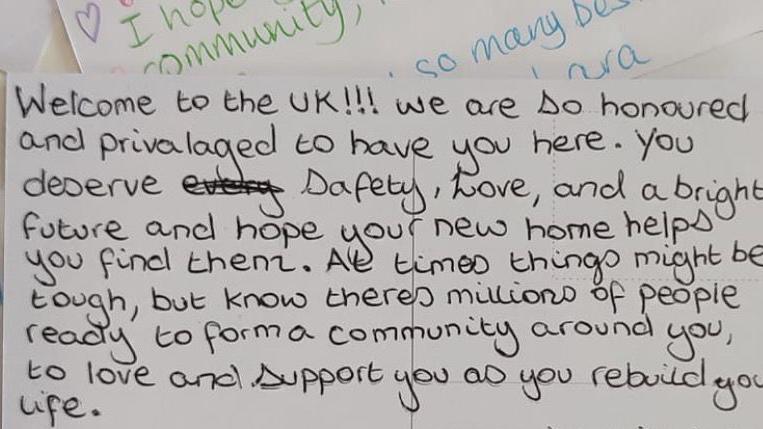 I hope
community,
so many bes
Welcome to the UK!!! we are so honoured
and privalaged to have you here. You
deserve every safety, love, and a bright
future and hope your new home helps
you find them. At times things might be
tough, but know theres millions of people
ready to form a community around you,
to love and support you as you rebuild you
life.